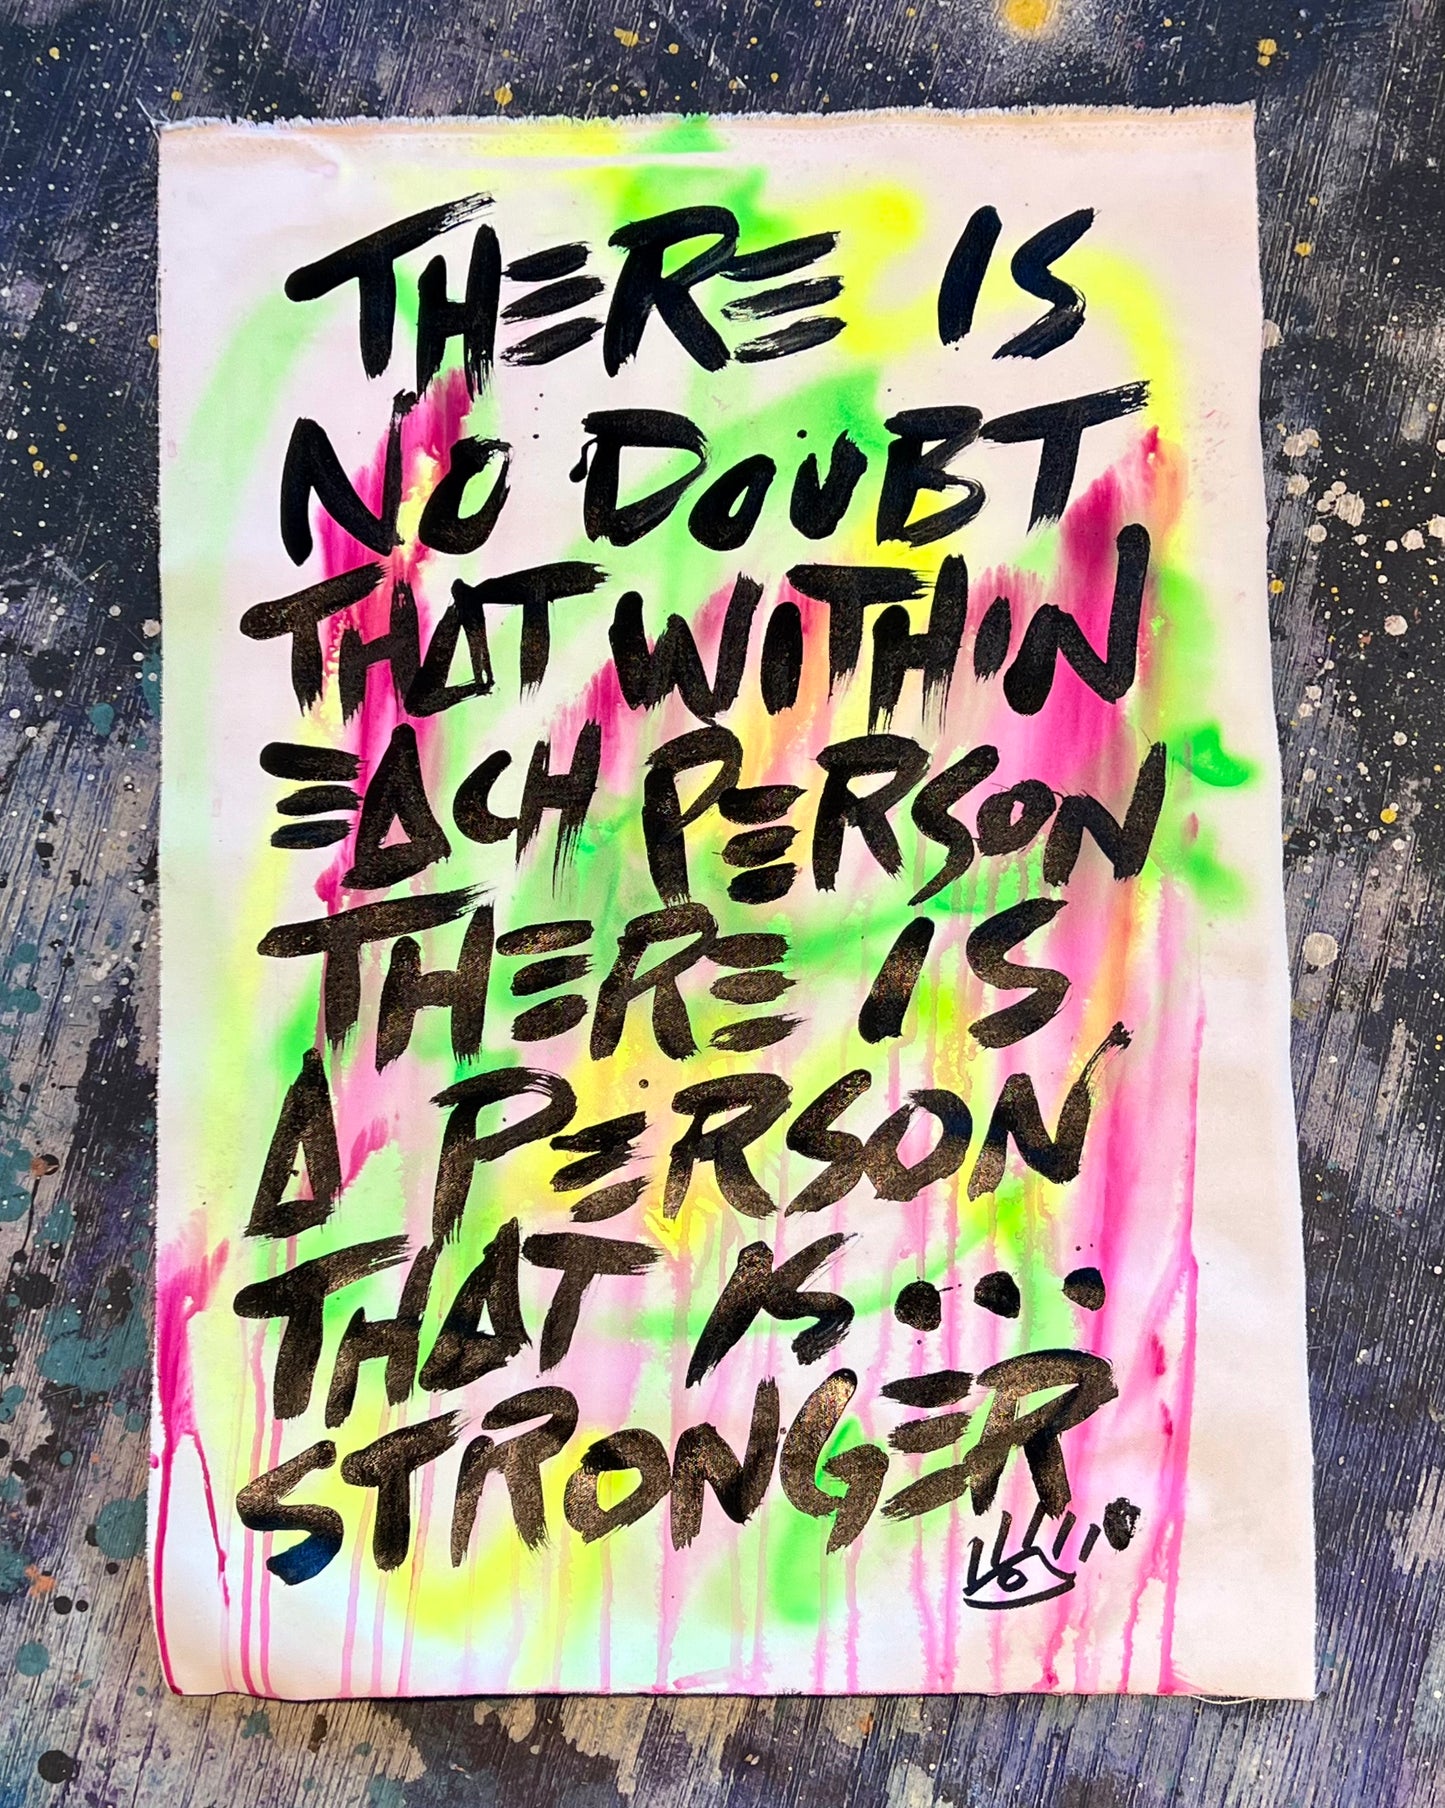 THERE IS
NO DOUBT
THAT WITHIN
EACH PERSON
THERE IS
A PERSON
THAT IS...
STRONGER